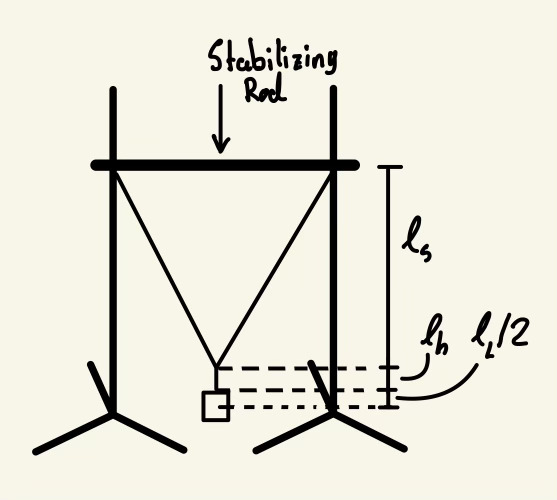 Stabilizing
Rod
lₛ
lₕ
l_L/2